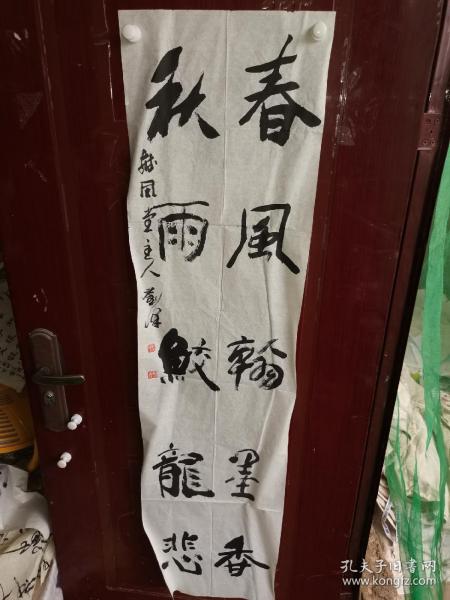 春風翰墨香
秋雨鮫龍悲
堂主人
孔夫子旧书网
www.kongfz.com